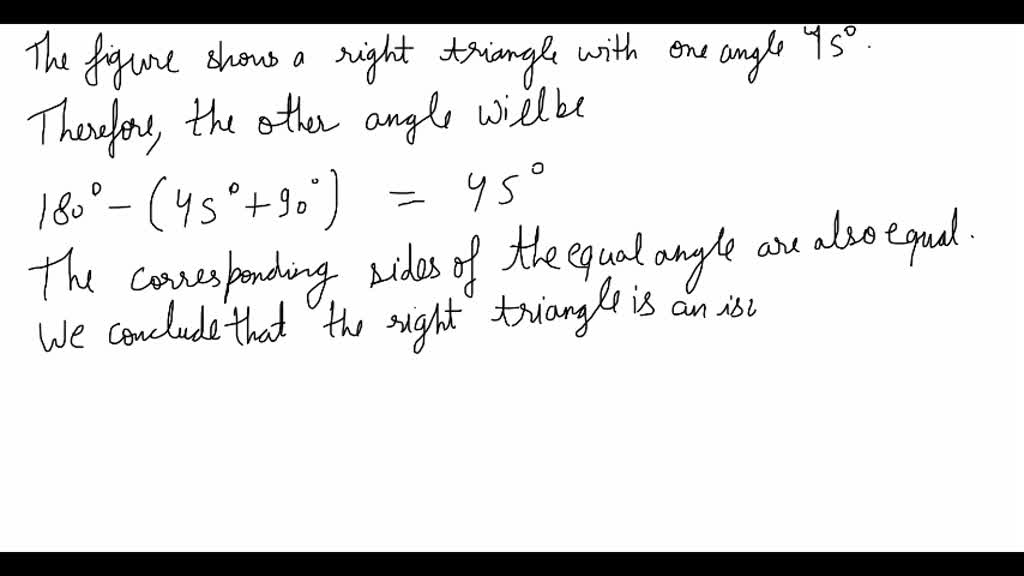 The figure shows a right triangle with one angle 45°.
Therefore, the other angle will be
180° - (45° + 90°) = 45°
The corresponding sides of the equal angle are also equal.
We conclude that the right triangle is an iso